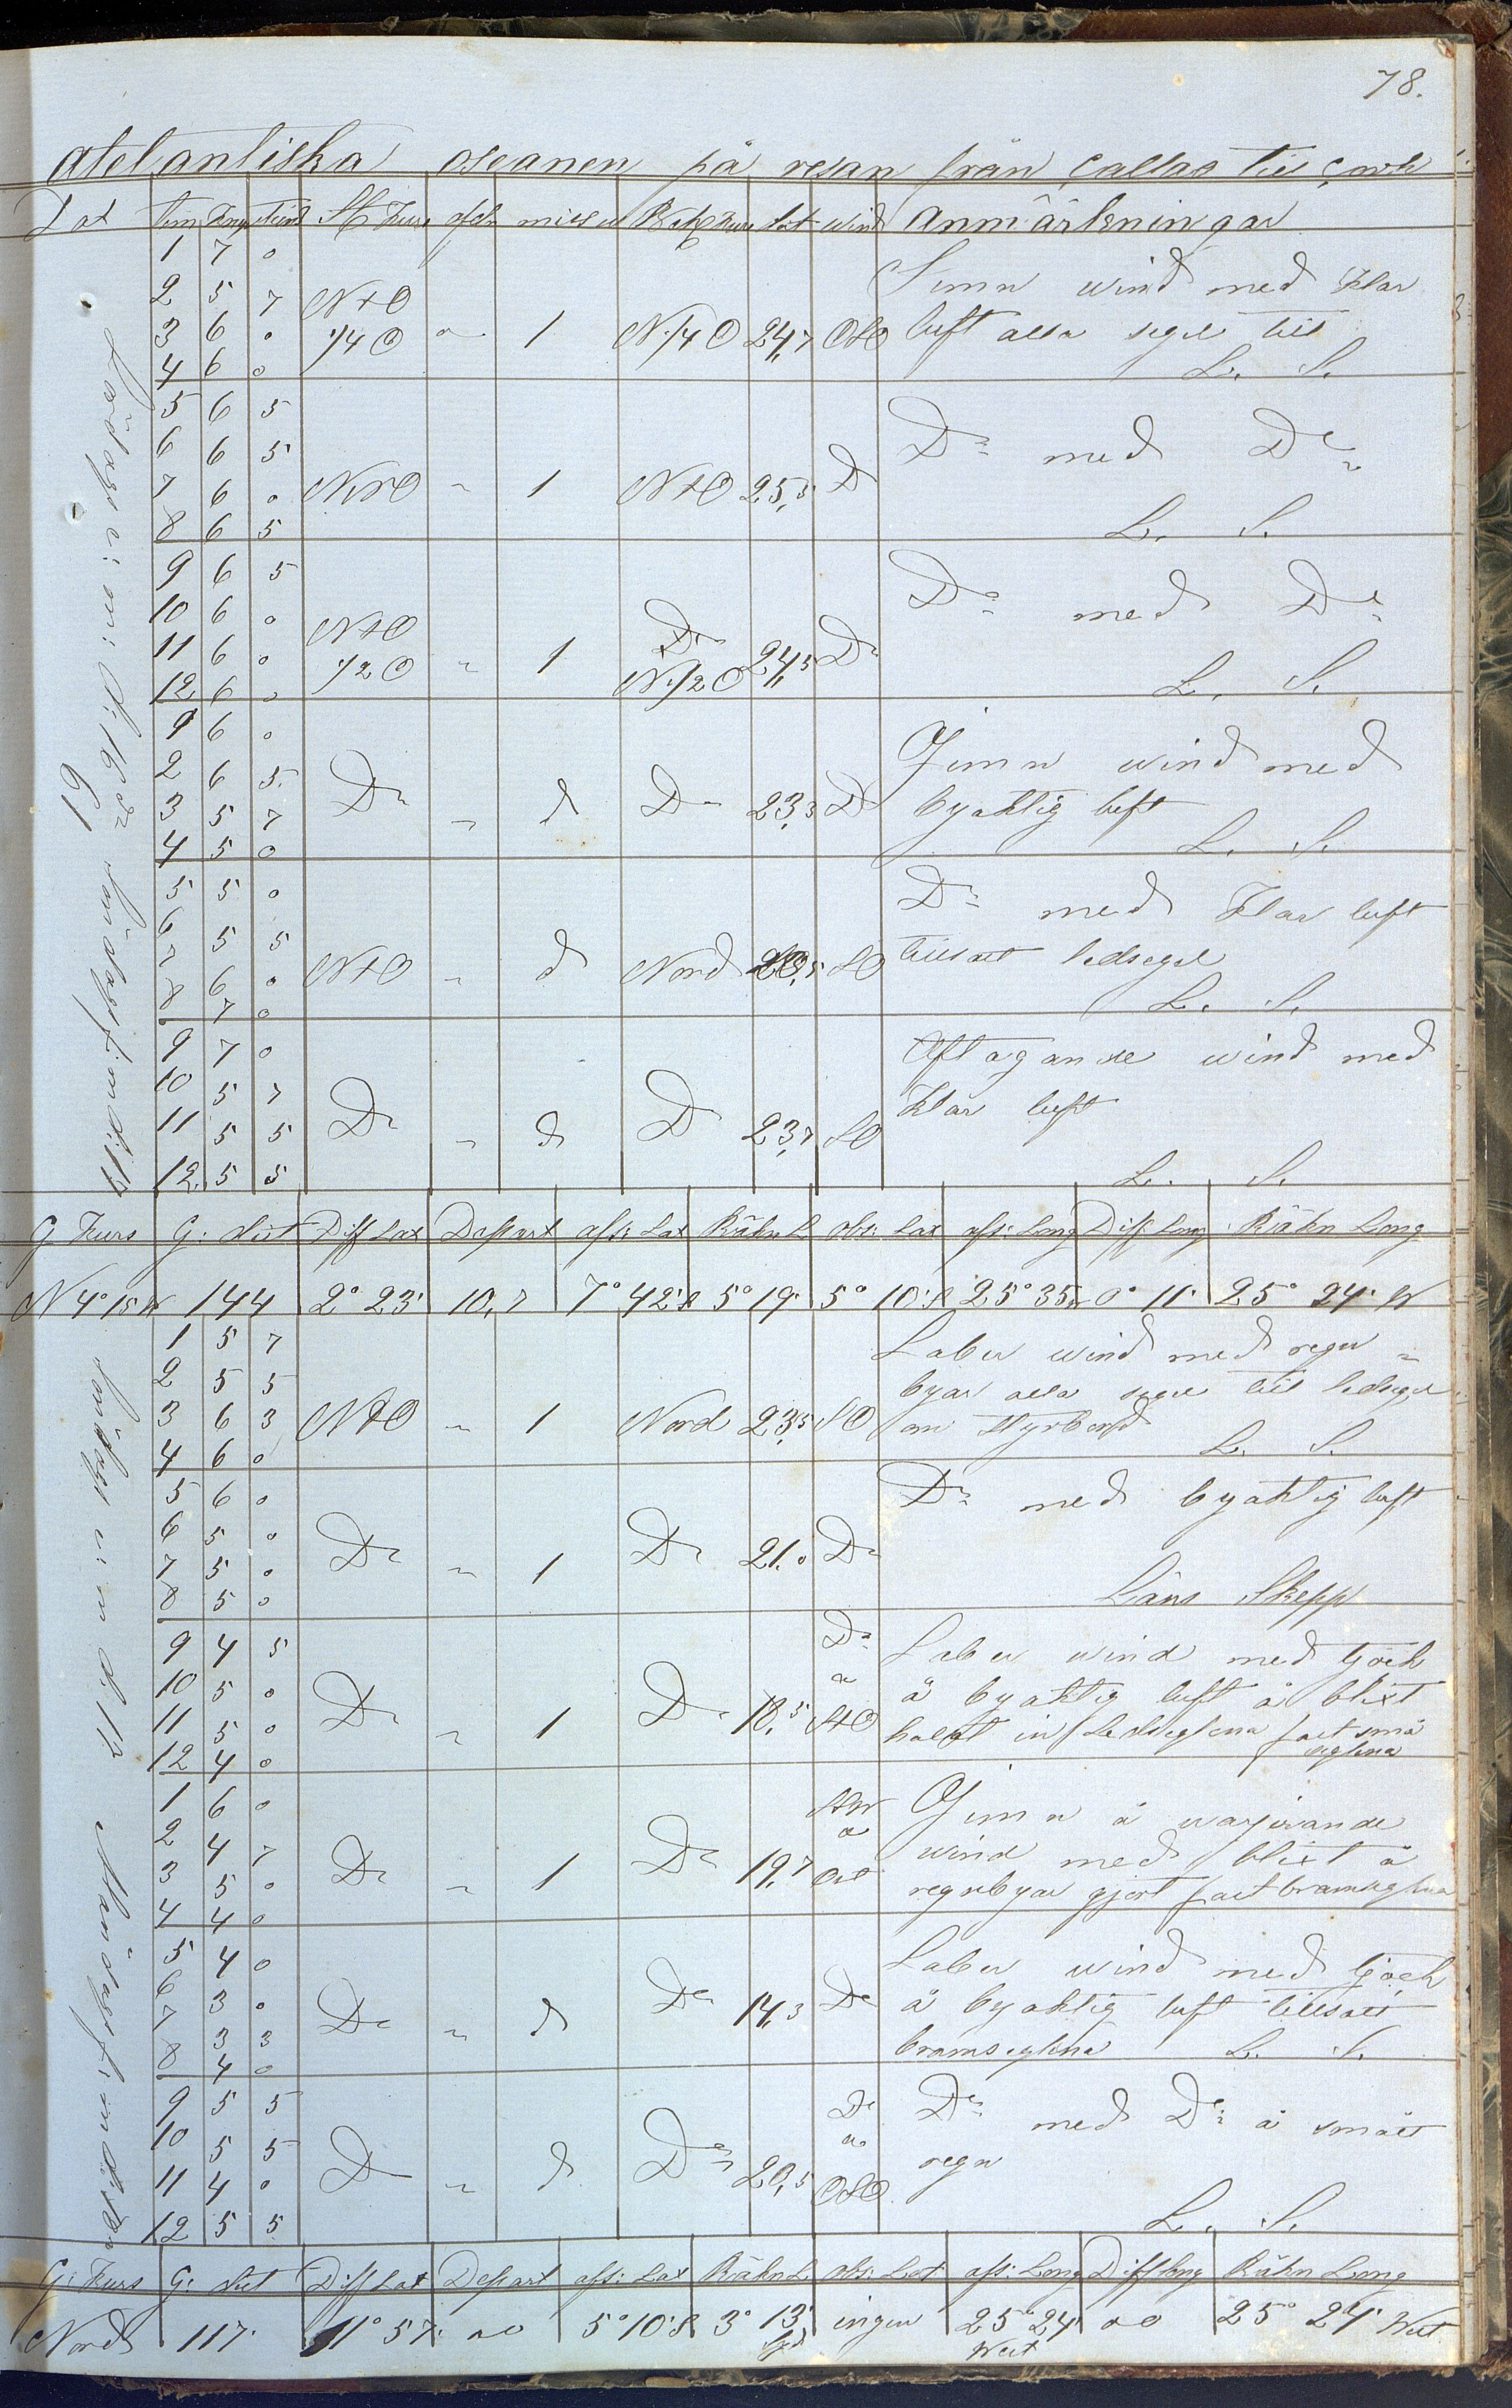 78.
atelantiska oseanen på resan från Callao till Cork
Lat tim Knop tiend St Kurs afdr miss v Beh Kurs dist wind Anmärkningar
Lördag e: m: d: 16de
Söndag f: m d: 17
61
1 7 0
2 5 7
3 6 0
4 6 0
NtO
1/4 O " 1 N 1/4 O 24,7 OSO
Jemn wind med klar
luft alla segel till
L. S.
5 6 5
6 6 5
7 6 0
8 6 5
NNO " 1 NtO 25,5 D
Do med Do
L. S.
9 6 5
10 6 0
11 6 0
12 6 0
NtO
1/2 O " 1 Do N 1/2 O 24,5 Do
Do med Do
L. S.
1 6 0
2 6 5
3 5 7
4 5 0
Do " d Do 23,3 D
Jemn wind med
byaktig luft
L. S.
5 5 0
6 5 5
7 6 0
8 7 0
NtO " d Nord SO
Do med klar luft
tillsatt ledsegel
L. S.
9 7 0
10 5 7
11 5 5
12 5 5
Do " d D 23,7 SO
Aftagande wind med
klar luft
L. S.
G Kurs G: dist Diff Lat Depart afs: Lat Räkn L obs: Lat afs: Long Diff: Long Räkn Long
N 4° 15 W 144 2° 23' 10,7 7° 42' S 5° 19' 5° 10' S 25° 35 0° 11' 25° 24' W
Söndag e: m d: 17
Måndag f: m d: 18
1 5 7
2 5 5
3 6 3
4 6 0
NtO " 1 Nord 23,5 SO
Laber wind med regn
byar alla segel till ledsegel
om styrbord
L. S.
5 6 0
6 5 0
7 5 0
8 5 0
Do " 1 Do 21,0 Do
Do med byaktig luft
Läns Skepp
9 4 5
10 5 0
11 5 0
12 4 0
Do " 1 Do 18,5 Do
a
StO
Laber wind med tjock
å byaktig luft å blixt
halat in Ledseglena fast små
seglena
1 6 0
2 4 7
3 5 0
4 4 0
Do " 1 Do 19,7
Jemn å warjerande
wind med blixt å
regnbyar gjort fast bramseglena
5 4 0
6 3 0
7 3 3
8 4 0
Do " d Do 14,3 Do
Laber wind med tjock
å byaktig luft tillsatt
bramseglena L. S.
9 5 5
10 5 5
11 4 0
12 5 5
Do " d Do 20,5 Do
a
OSO
Do med Do å smått
regn
L. S.
G: Kurs G: dist Diff Lat Depart afs: Lat Räkn L obs: Lat afs: Long Diff long Räkn Long
Nord 117 1° 57' 00 5° 10' S 3° 13' Syd ingen 25° 24' West 00 25° 24' West